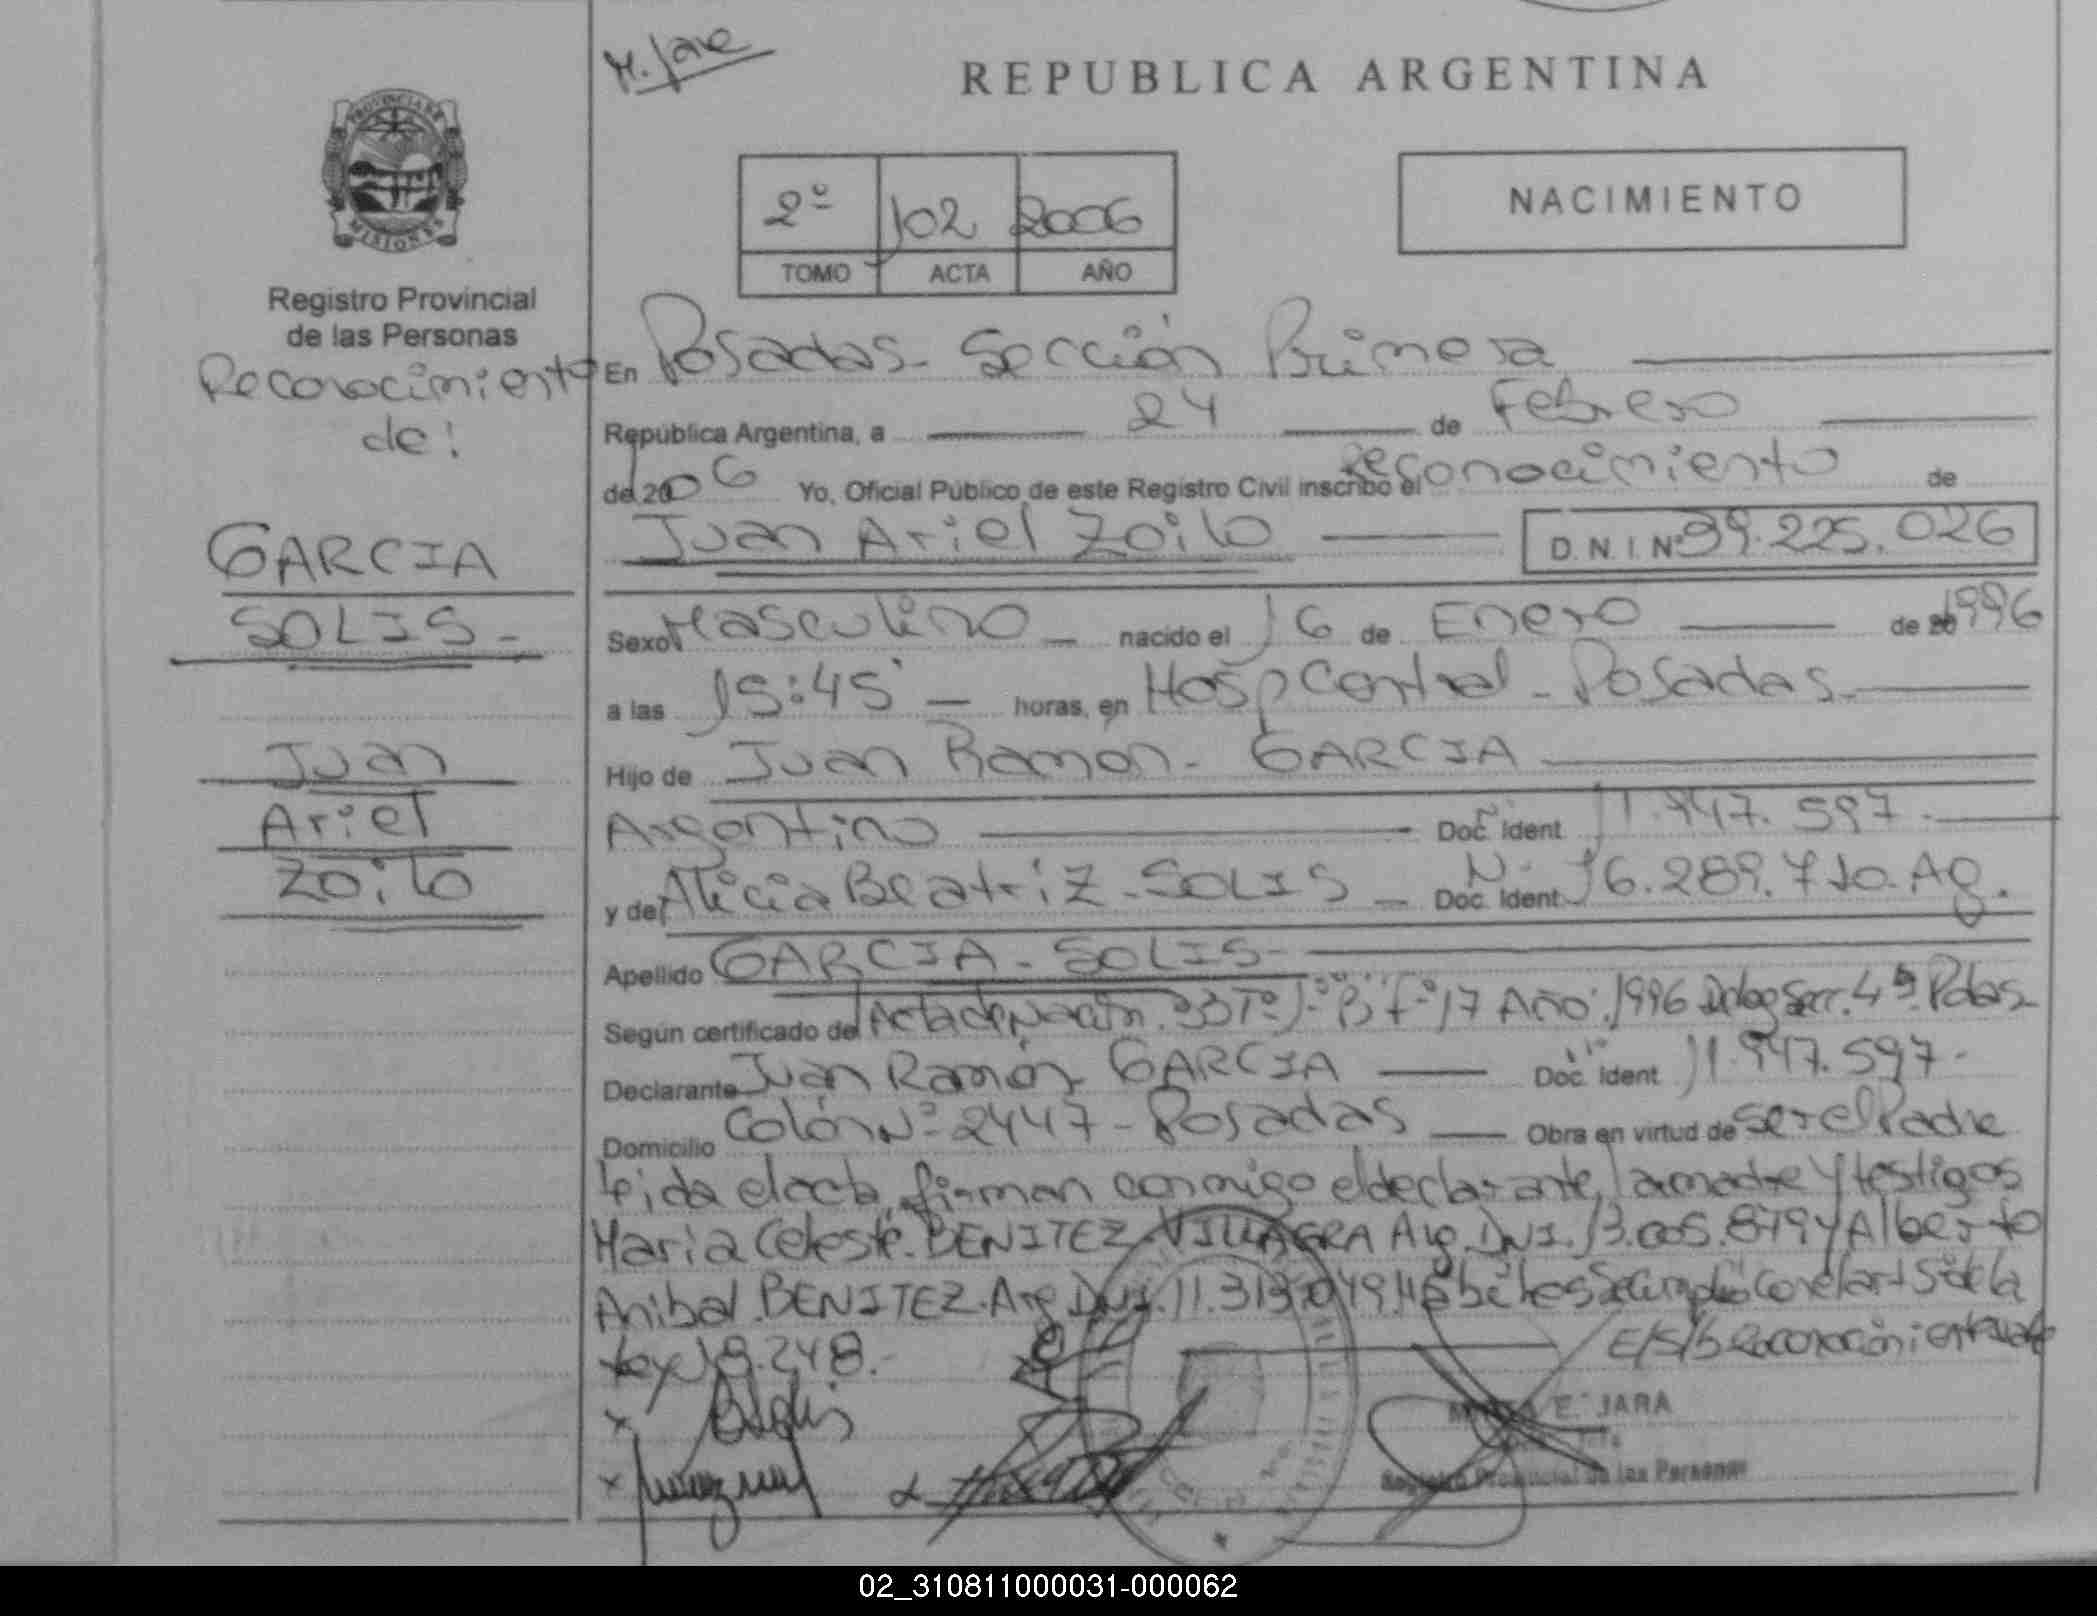 M. Jara
REPUBLICA ARGENTINA
PROVINCIA DE
MISIONES
2º 102 2006
TOMO ACTA AÑO
NACIMIENTO
Registro Provincial
de las Personas
Reconocimiento
de:
GARCIA
SOLIS -
Juan
Ariel
Zoilo
En Posadas - Sección Primera
República Argentina, a 24 de Febrero
de 2006 Yo, Oficial Público de este Registro Civil inscribo el Reconocimiento de
Juan Ariel Zoilo D.N.I. Nº 39.225.026
Sexo Masculino - nacido el 16 de Enero de 1996
a las 15:45' - horas, en Hosp Central - Posadas -
Hijo de Juan Ramon - GARCIA
Argentino Doc. Ident 11.947.597.-
y de Alicia Beatriz - SOLIS - Doc. Ident 16.289.710. Ag.
Apellido GARCIA - SOLIS -
Según certificado de Acta de Nación. 33 Tº 1º 17 Año: 1996 Deleg Secc. 4ª Pdas -
Declarante Juan Ramón GARCIA Doc. Ident 11.947.597.-
Domicilio Colón Nº 2447 - Posadas Obra en virtud de Ser el Padre
leida el acta, firman conmigo el declarante, la madre y testigos
Maria Celeste. BENITEZ VILLAGRA Arg. DNI. 13.005.879 y Alberto
Anibal BENITEZ. Arg DNI. 11.313.049. Hábiles Se Cumplió con el art de la
Ley 18.248.-
E/S/b Reconocimiento vale
E. JARA
Registro Provincial de las Personas
02_310811000031-000062